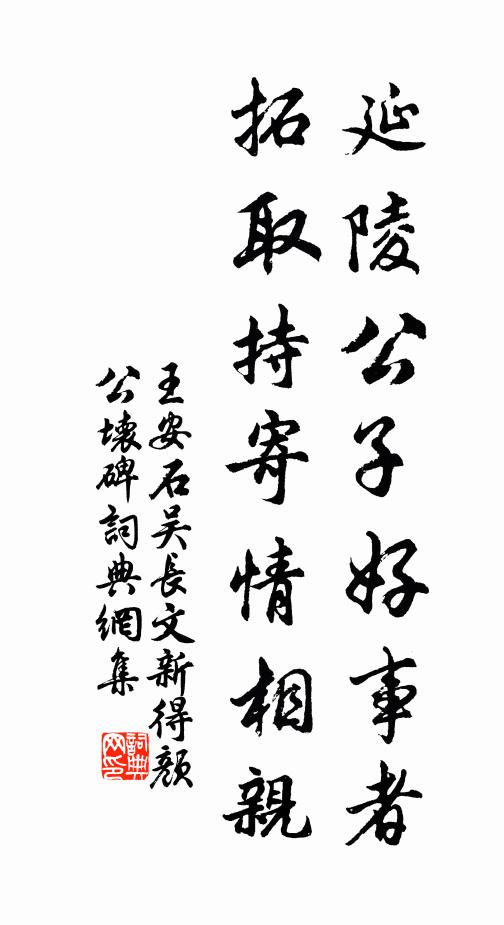 延陵公子好事者
拓取持寄情相親
王安石吳長文新得顏
公壞碑詞典網集
詞典
网印